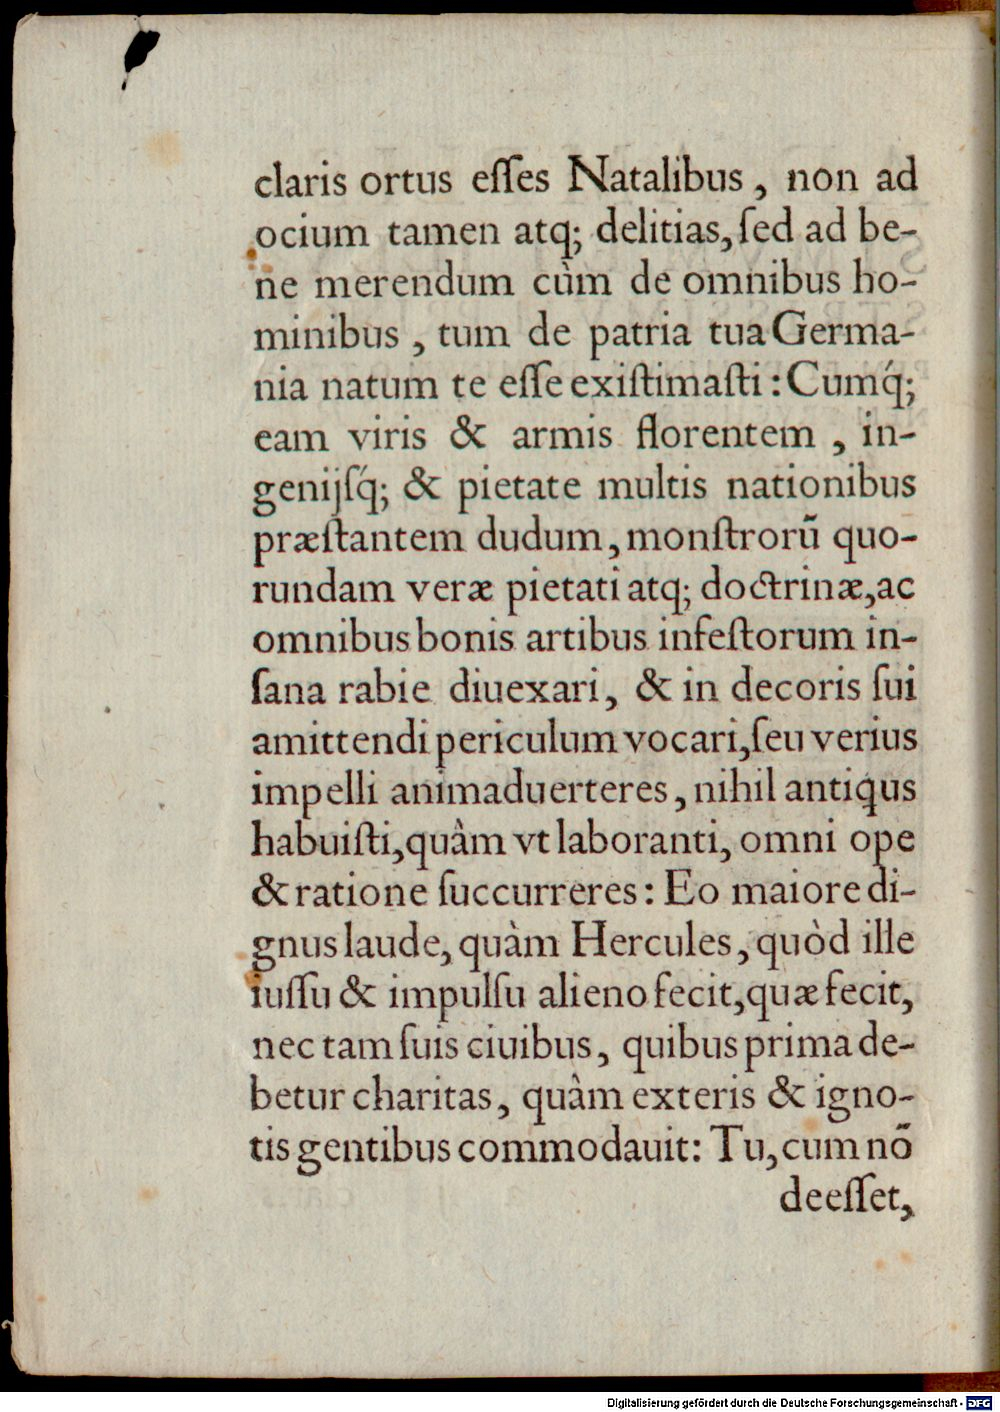 claris ortus eſſes Natalibus, non ad
ocium tamen atq; delitias, ſed ad be-
ne merendum cùm de omnibus ho-
minibus, tum de patria tua Germa-
nia natum te eſſe exiſtimaſti: Cumq́;
eam viris & armis florentem, in-
genijſq́; & pietate multis nationibus
præſtantem dudum, monſtrorũ quo-
rundam veræ pietati atq; doctrinæ, ac
omnibus bonis artibus infeſtorum in-
ſana rabie diuexari, & in decoris ſui
amittendi periculum vocari, ſeu verius
impelli animaduerteres, nihil antiqus
habuiſti, quàm vt laboranti, omni ope
& ratione ſuccurreres: Eo maiore di-
gnus laude, quàm Hercules, quòd ille
iuſſu & impulſu alieno fecit, quæ fecit,
nec tam ſuis ciuibus, quibus prima de-
betur charitas, quàm exteris & igno-
tis gentibus commodauit: Tu, cum nõ
deeſſet,
Digitalisierung gefördert durch die Deutsche Forschungsgemeinschaft - DFG